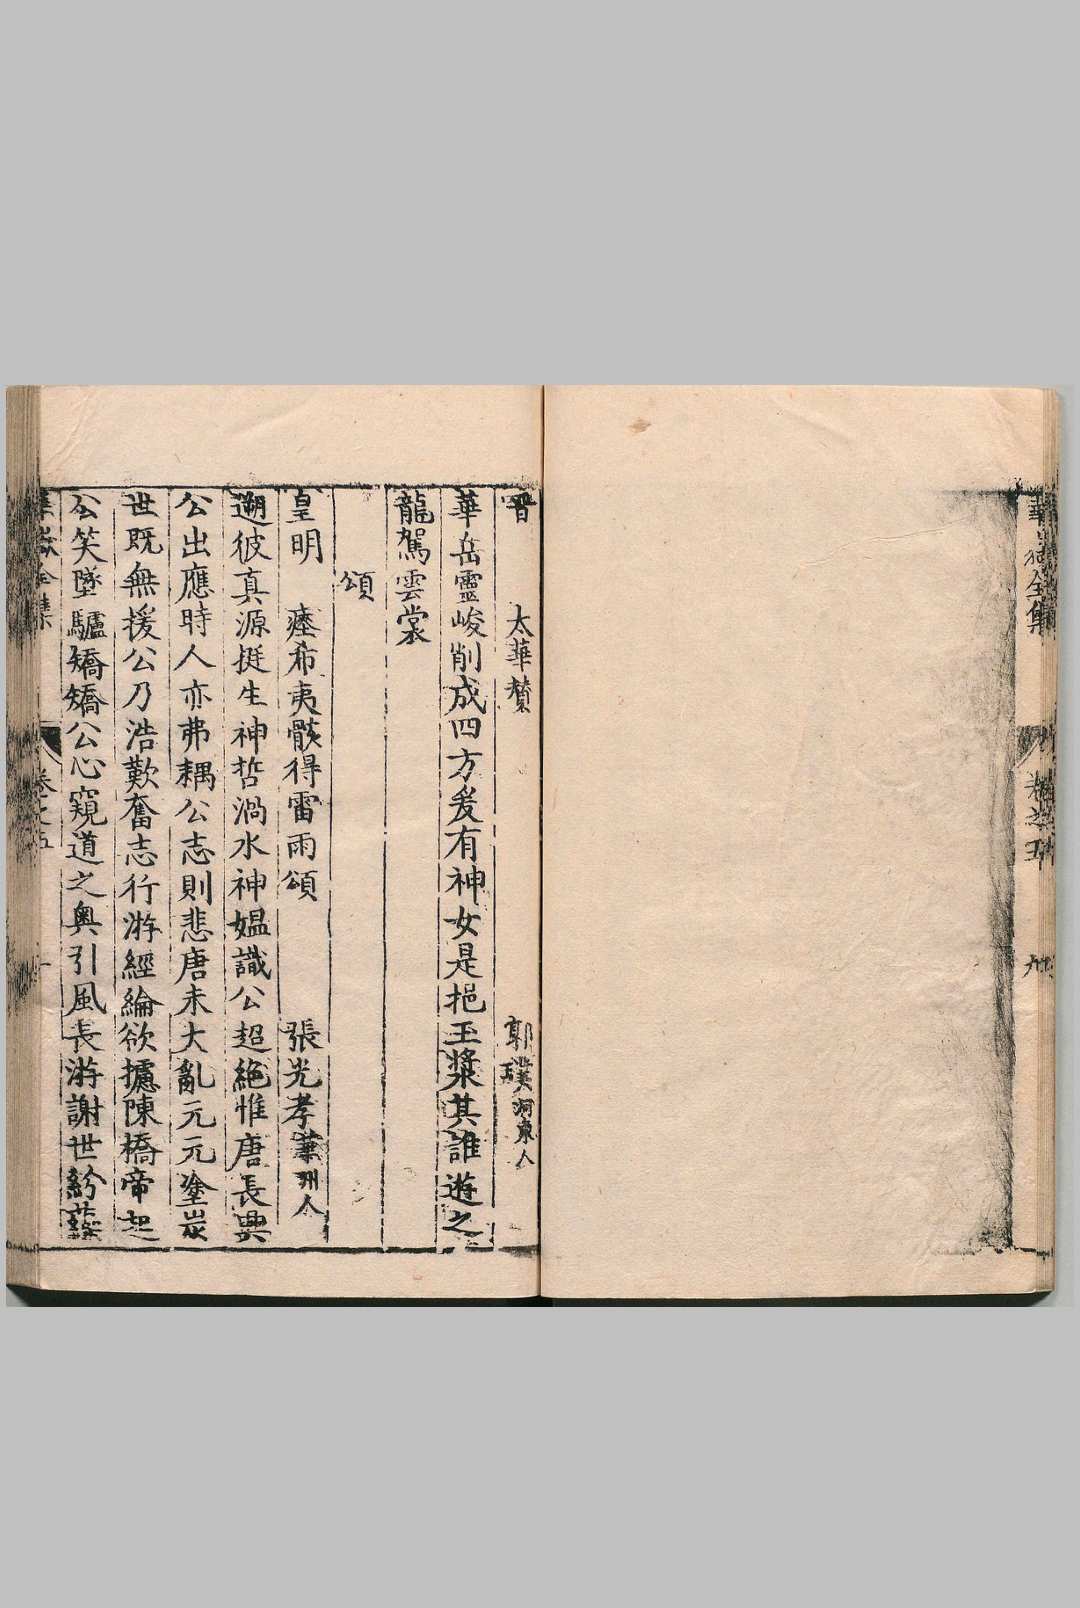 華嶽全集
卷之五
九
晉 太華贊 郭璞河東人
華岳靈峻削成四方爰有神女是挹玉漿其誰遊之
龍駕雲裳
頌
皇明 瘞希夷骸得雷雨頌 張光孝華州人
遡彼真源挺生神哲渦水神媼識公超絶惟唐長興
公出應時人亦弗耦公志則悲唐末大亂元元塗炭
世既無援公乃浩歎奮志行游經綸欲攄陳橋帝起
公笑墜驢矯矯公心窺道之奥引風長游謝世紛
華嶽全集
卷之五